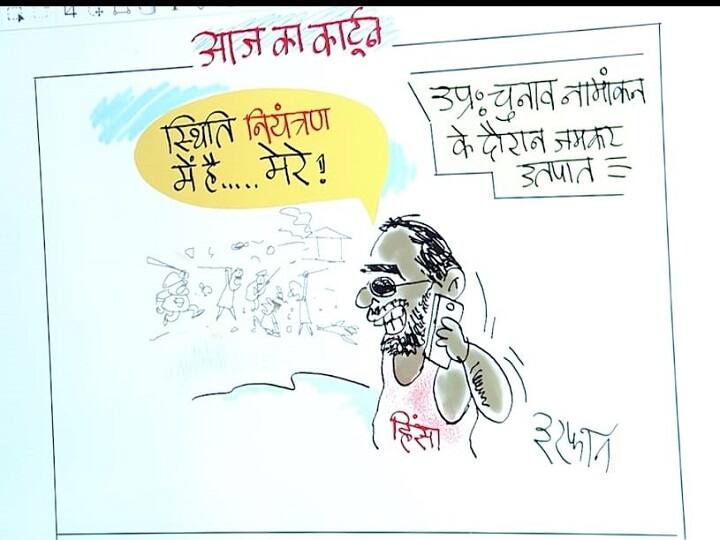 आज का कार्टून
उप्र: चुनाव नामांकन
के दौरान जमकर
उत्पात
स्थिति नियंत्रण
में है..... मेरे!
हिंसा
इरफान